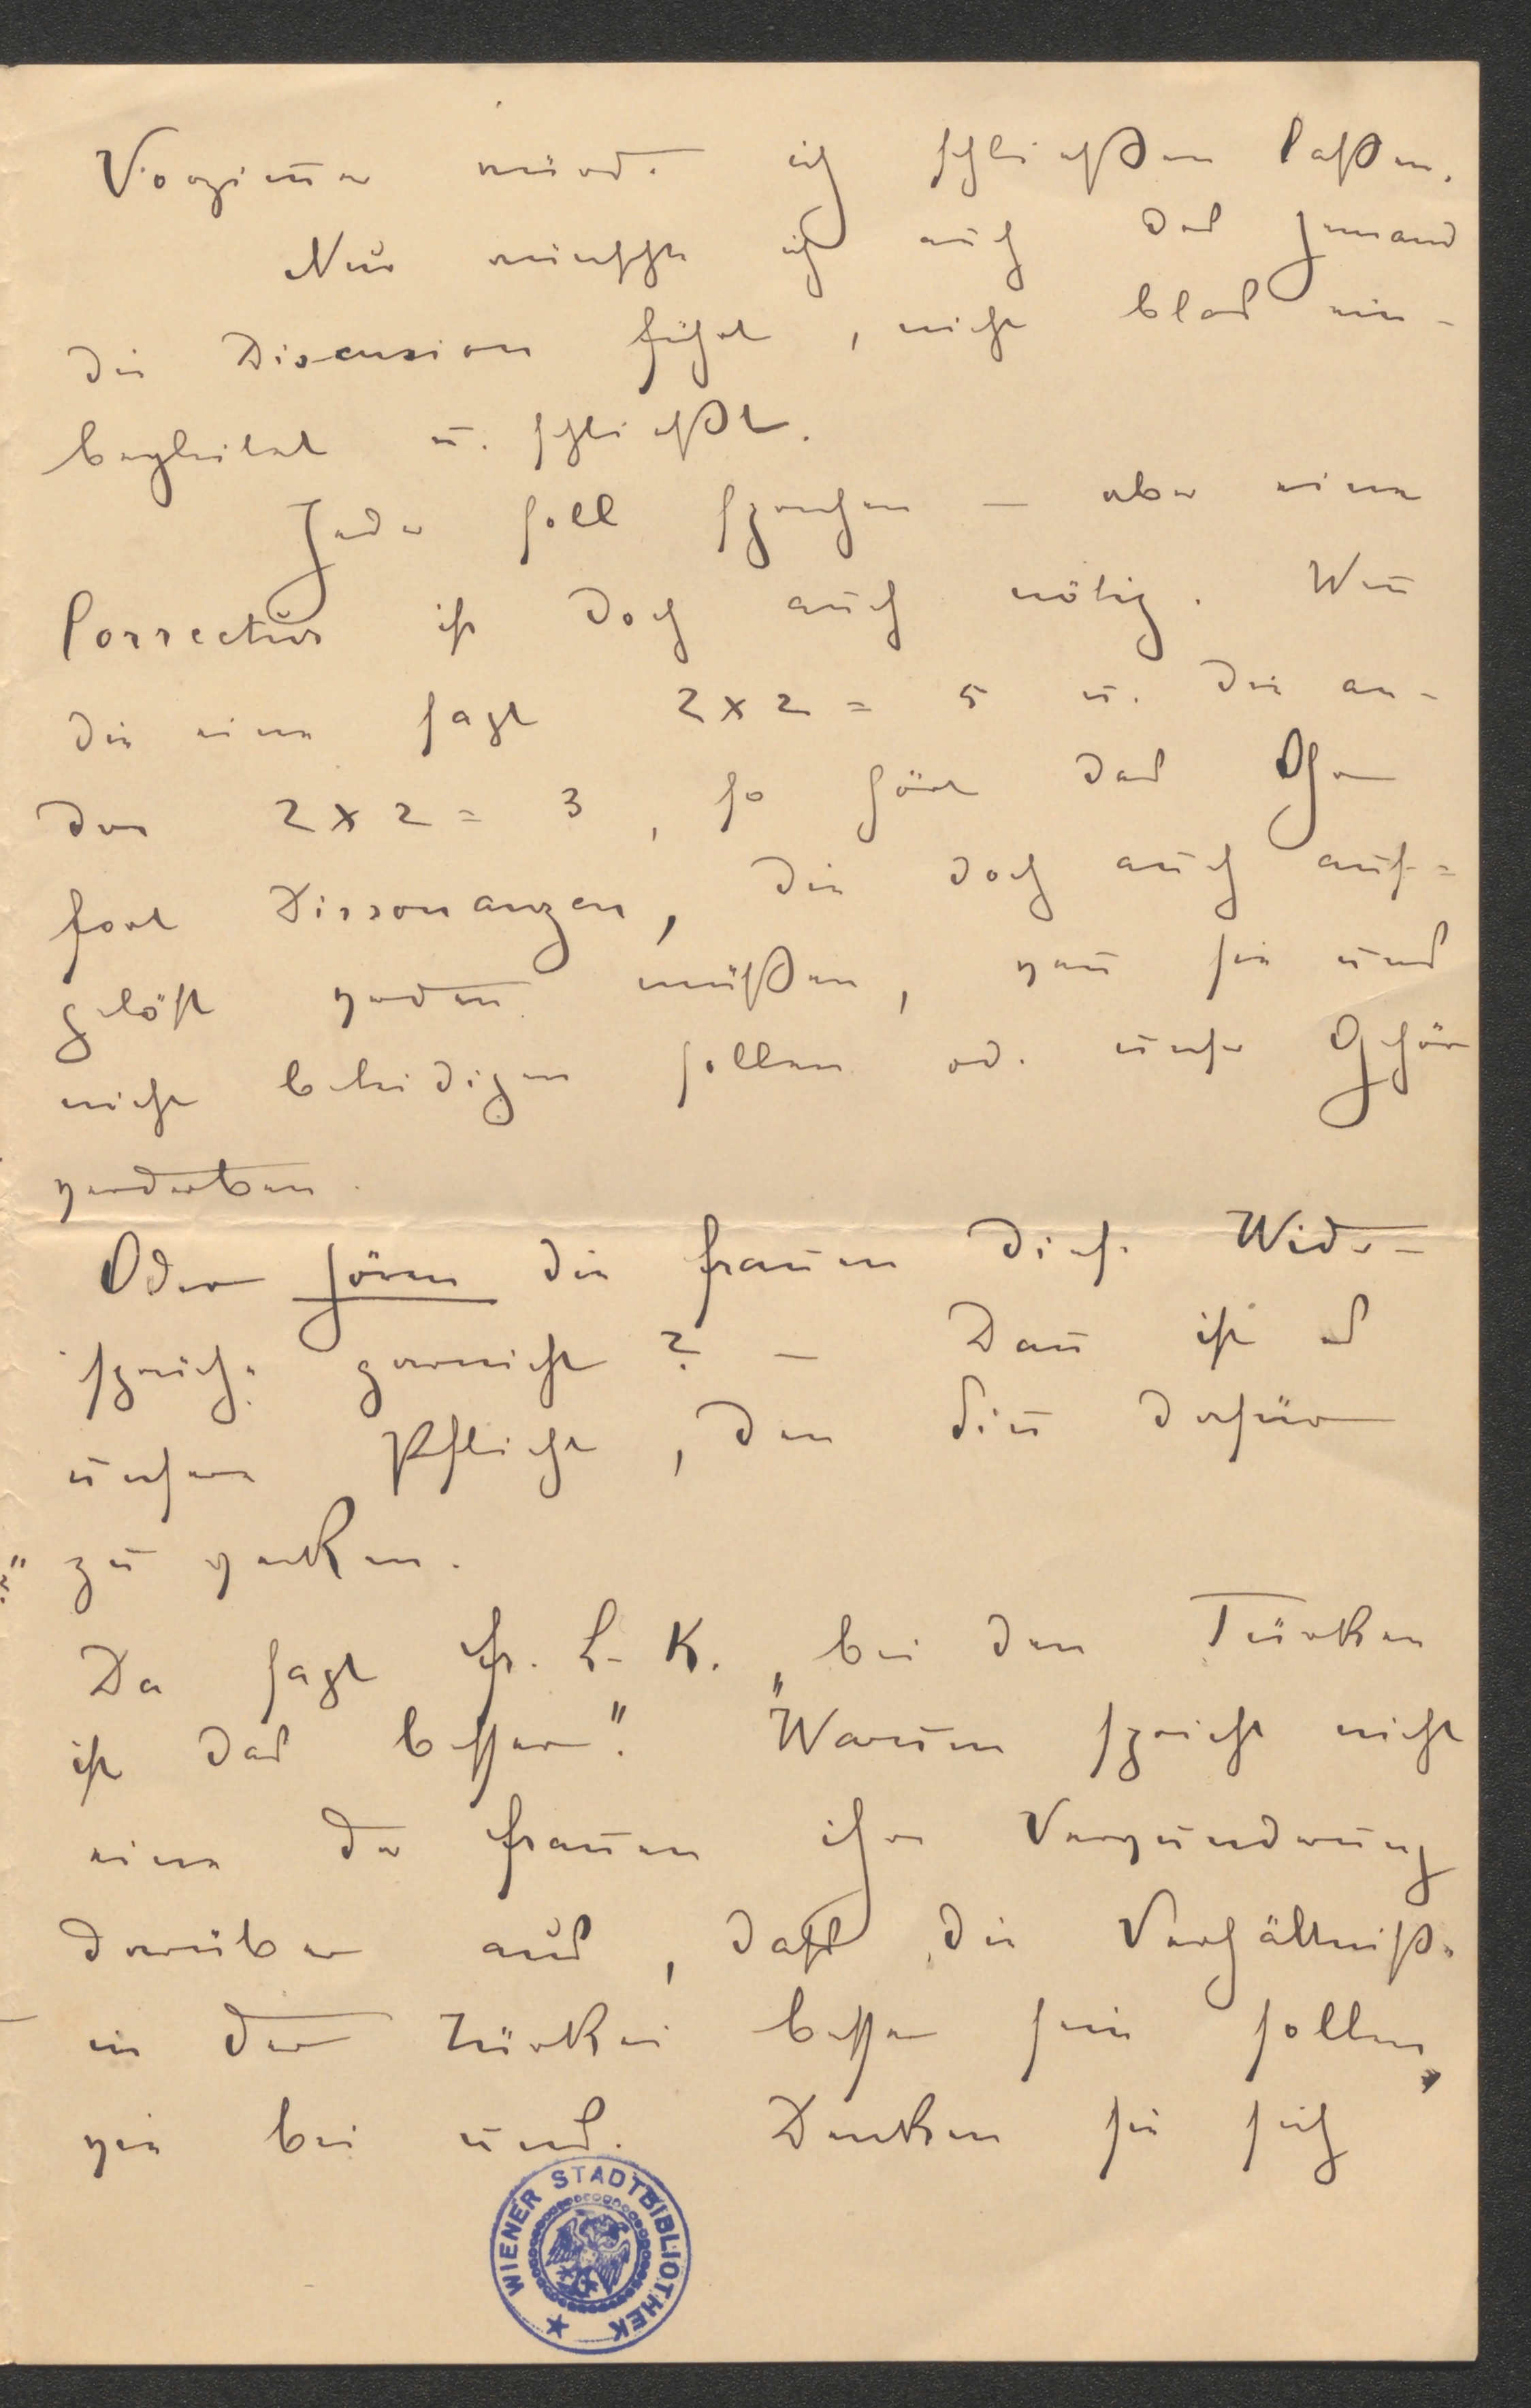 Vorzimer würde ich schließen laßen.
Nur wünschte ich auch das Jemand
die Discusion führt, nicht blos ein-
begleitet u. schließt.
Jeder soll sprechen — aber eine
Correctur ist doch auch nötig. Weñ
die eine sagt 2 x 2 = 5 u. die an-
dere 2 x 2 = 3, so hört das Ohr
fort Dissonanzen, die doch auch auf=
gelöst werden müßen, weñ sie uns
nicht beleidigen sollen od. unser Gehör
verderben.
Oder hören die Frauen diese Wider-
sprüche garnicht? — Dañ ist es
unsere Pflicht, den Siñ dafür
zu wecken.
Da sagt Fr. L. K. „bei den Türken
ist das besser". Warum spricht nicht
eine der Frauen ihre Verwunderung
darüber aus, daß die Verhältniße
in der Türkei besser sein sollen,
wie bei uns. Denken sie sich
WIENER STADTBIBLIOTHEK